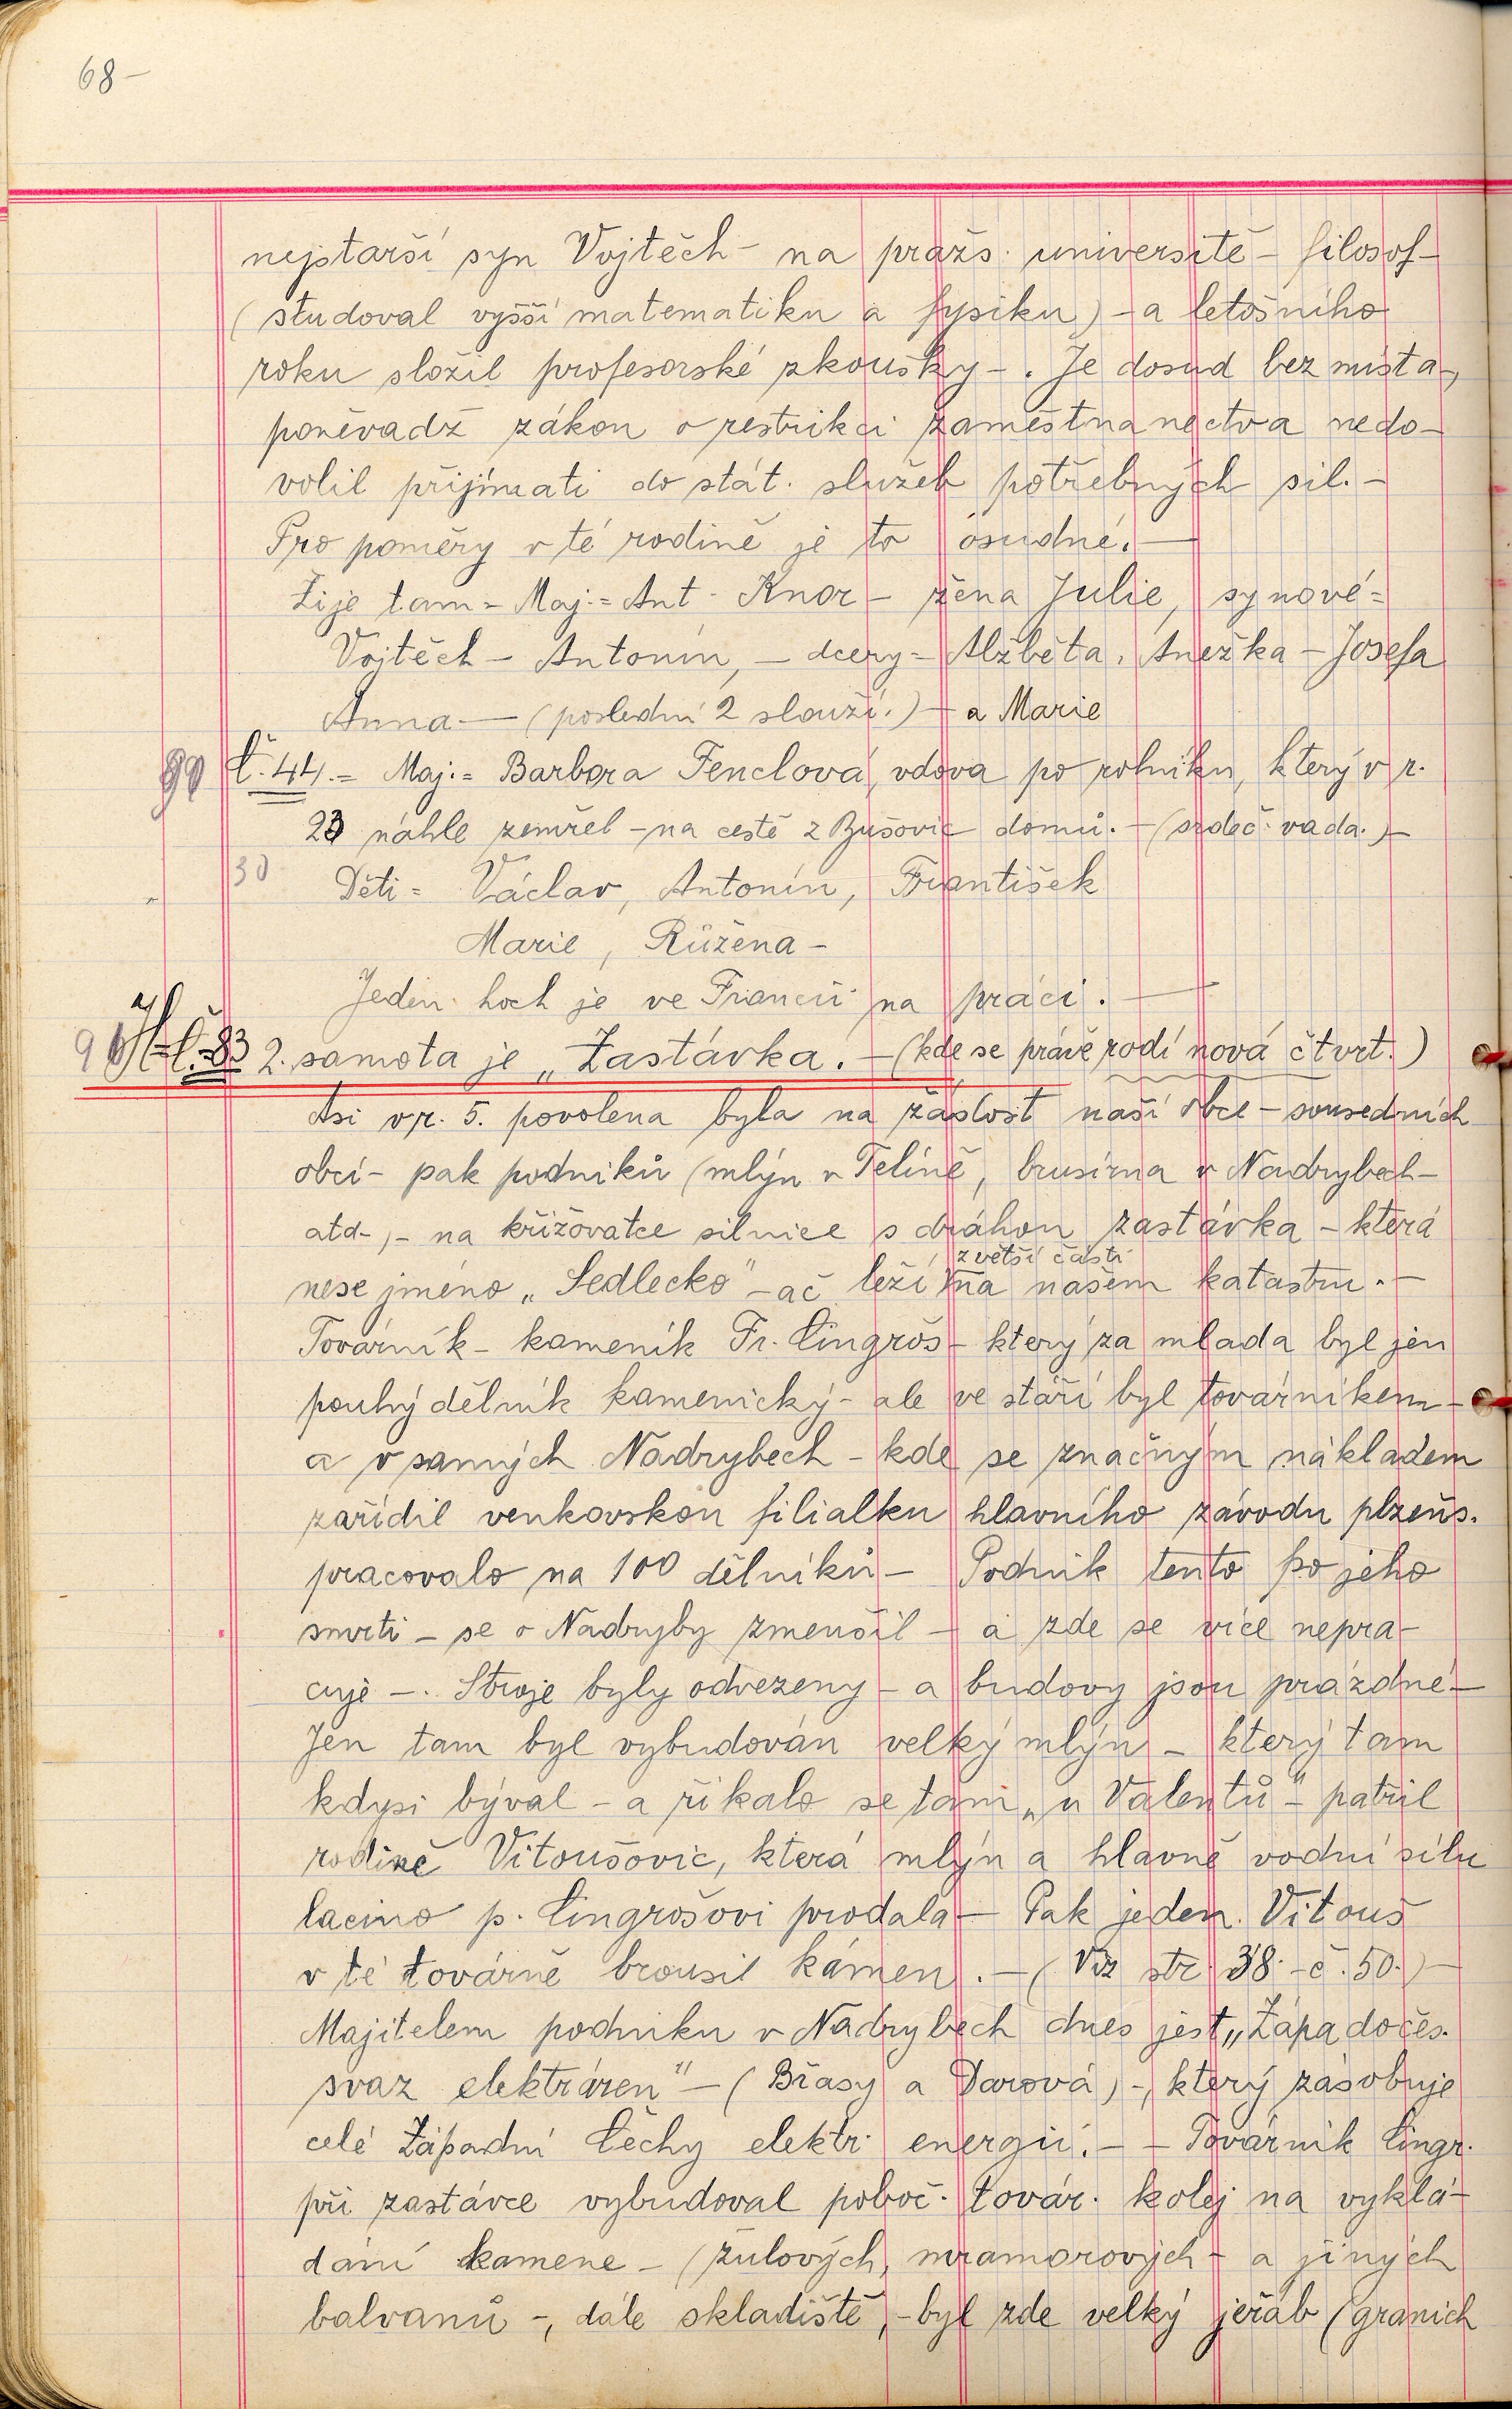 68-
nejstarší syn Vojtěch - na pražs. universitě - filosof -
(studoval vyšší matematiku a fysiku) - a letošního
roku složil profesorské zkoušky -. Je dosud bez místa -,
poněvadž zákon o restrikci zaměstnanectva nedo-
volil přijímati do stát. služeb potřebných sil. -
Pro poměry v té rodině je to ósudné. -
Žije tam = Maj. = Ant. Knor - žena Julie, synové =
Vojtěch - Antonín, - dcery = Alžběta, Anežka - Josefa
Anna - (poslední 2 slouží.) - a Marie
90 Č. 44. = Maj. = Barbora Fenclová, vdova po rolníku, který v r.
23 náhle zemřel - na cestě z Bušovic domů. - (srdeč. vada.) -
30 Děti = Václav, Antonín, František
Marie, Růžena -
Jeden hoch je ve Francii na práci. -
91 č. 83 2. samota je „Zastávka. - (kde se právě rodí nová čtvrt.)
Asi v r. 5. povolena byla na žádost naší obce - sousedních
obcí - pak podniků (mlýn v Felíně, brusírna v Nadrybech -
atd -, - na křižovatce silnice s dráhou zastávka - která
z větší části
nese jméno „Sedlecko" - ač leží na našem katastru. -
Továrník - kameník Fr. Cingroš - který za mlada byl jen
pouhý dělník kamenický - ale ve stáří byl továrníkem -
a v samých Nadrybech - kde se značným nákladem
zařídil venkovskou filialku hlavního závodu plzeňs.
pracovalo na 100 dělníků - Podnik tento po jeho
smrti - se o Nadryby zmenšil - a zde se více nepra-
cuje -. Stroje byly odvezeny - a budovy jsou prázdné -
Jen tam byl vybudován velký mlýn - který tam
kdysi býval - a říkalo se tam „u Valentů" - patřil
rodině Vitoušovic, která mlýn a hlavně vodní sílu
lacino p. Cingrošovi prodala - Pak jeden Vitouš
v té továrně brousil kámen. - (Viz str. 38. - č. 50.) -
Majitelem podniku v Nadrybech dnes jest „Západočes.
svaz elektráren" - (Břasy a Darová) -, který zásobuje
celé Západní Čechy elektr. energií. - - Továrník Cingr.
při zastávce vybudoval poboč. továr. kolej na vyklá-
dání kamene - (žulových, mramorových - a jiných
balvanů -, dále skladiště, - byl zde velký jeřáb (granich